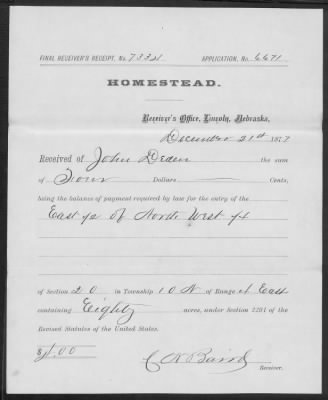 FINAL RECEIVER'S RECEIPT, No. 7334 APPLICATION, No. 6671
HOMESTEAD.
Receiver's Office, Lincoln, Nebraska,
December 21st 1877
Received of John Dean the sum
of Four Dollars Cents,
being the balance of payment required by law for the entry of the
East ½ of North West ¼
of Section 20 in Township 10 N of Range 4 East
containing Eighty acres, under Section 2291 of the
Revised Statutes of the United States.
$4.00
Baird
Receiver.